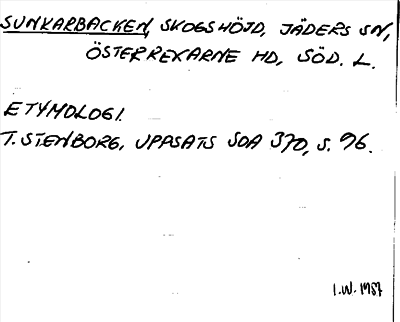 SUNKARBACKEN, SKOGSHÖJD, JÄDERS SN,
ÖSTERREKARNE HD, SÖD. L.
ETYMOLOGI.
T. STENBORG, UPPSATS SOA 370, S. 96.
I.W. 1987